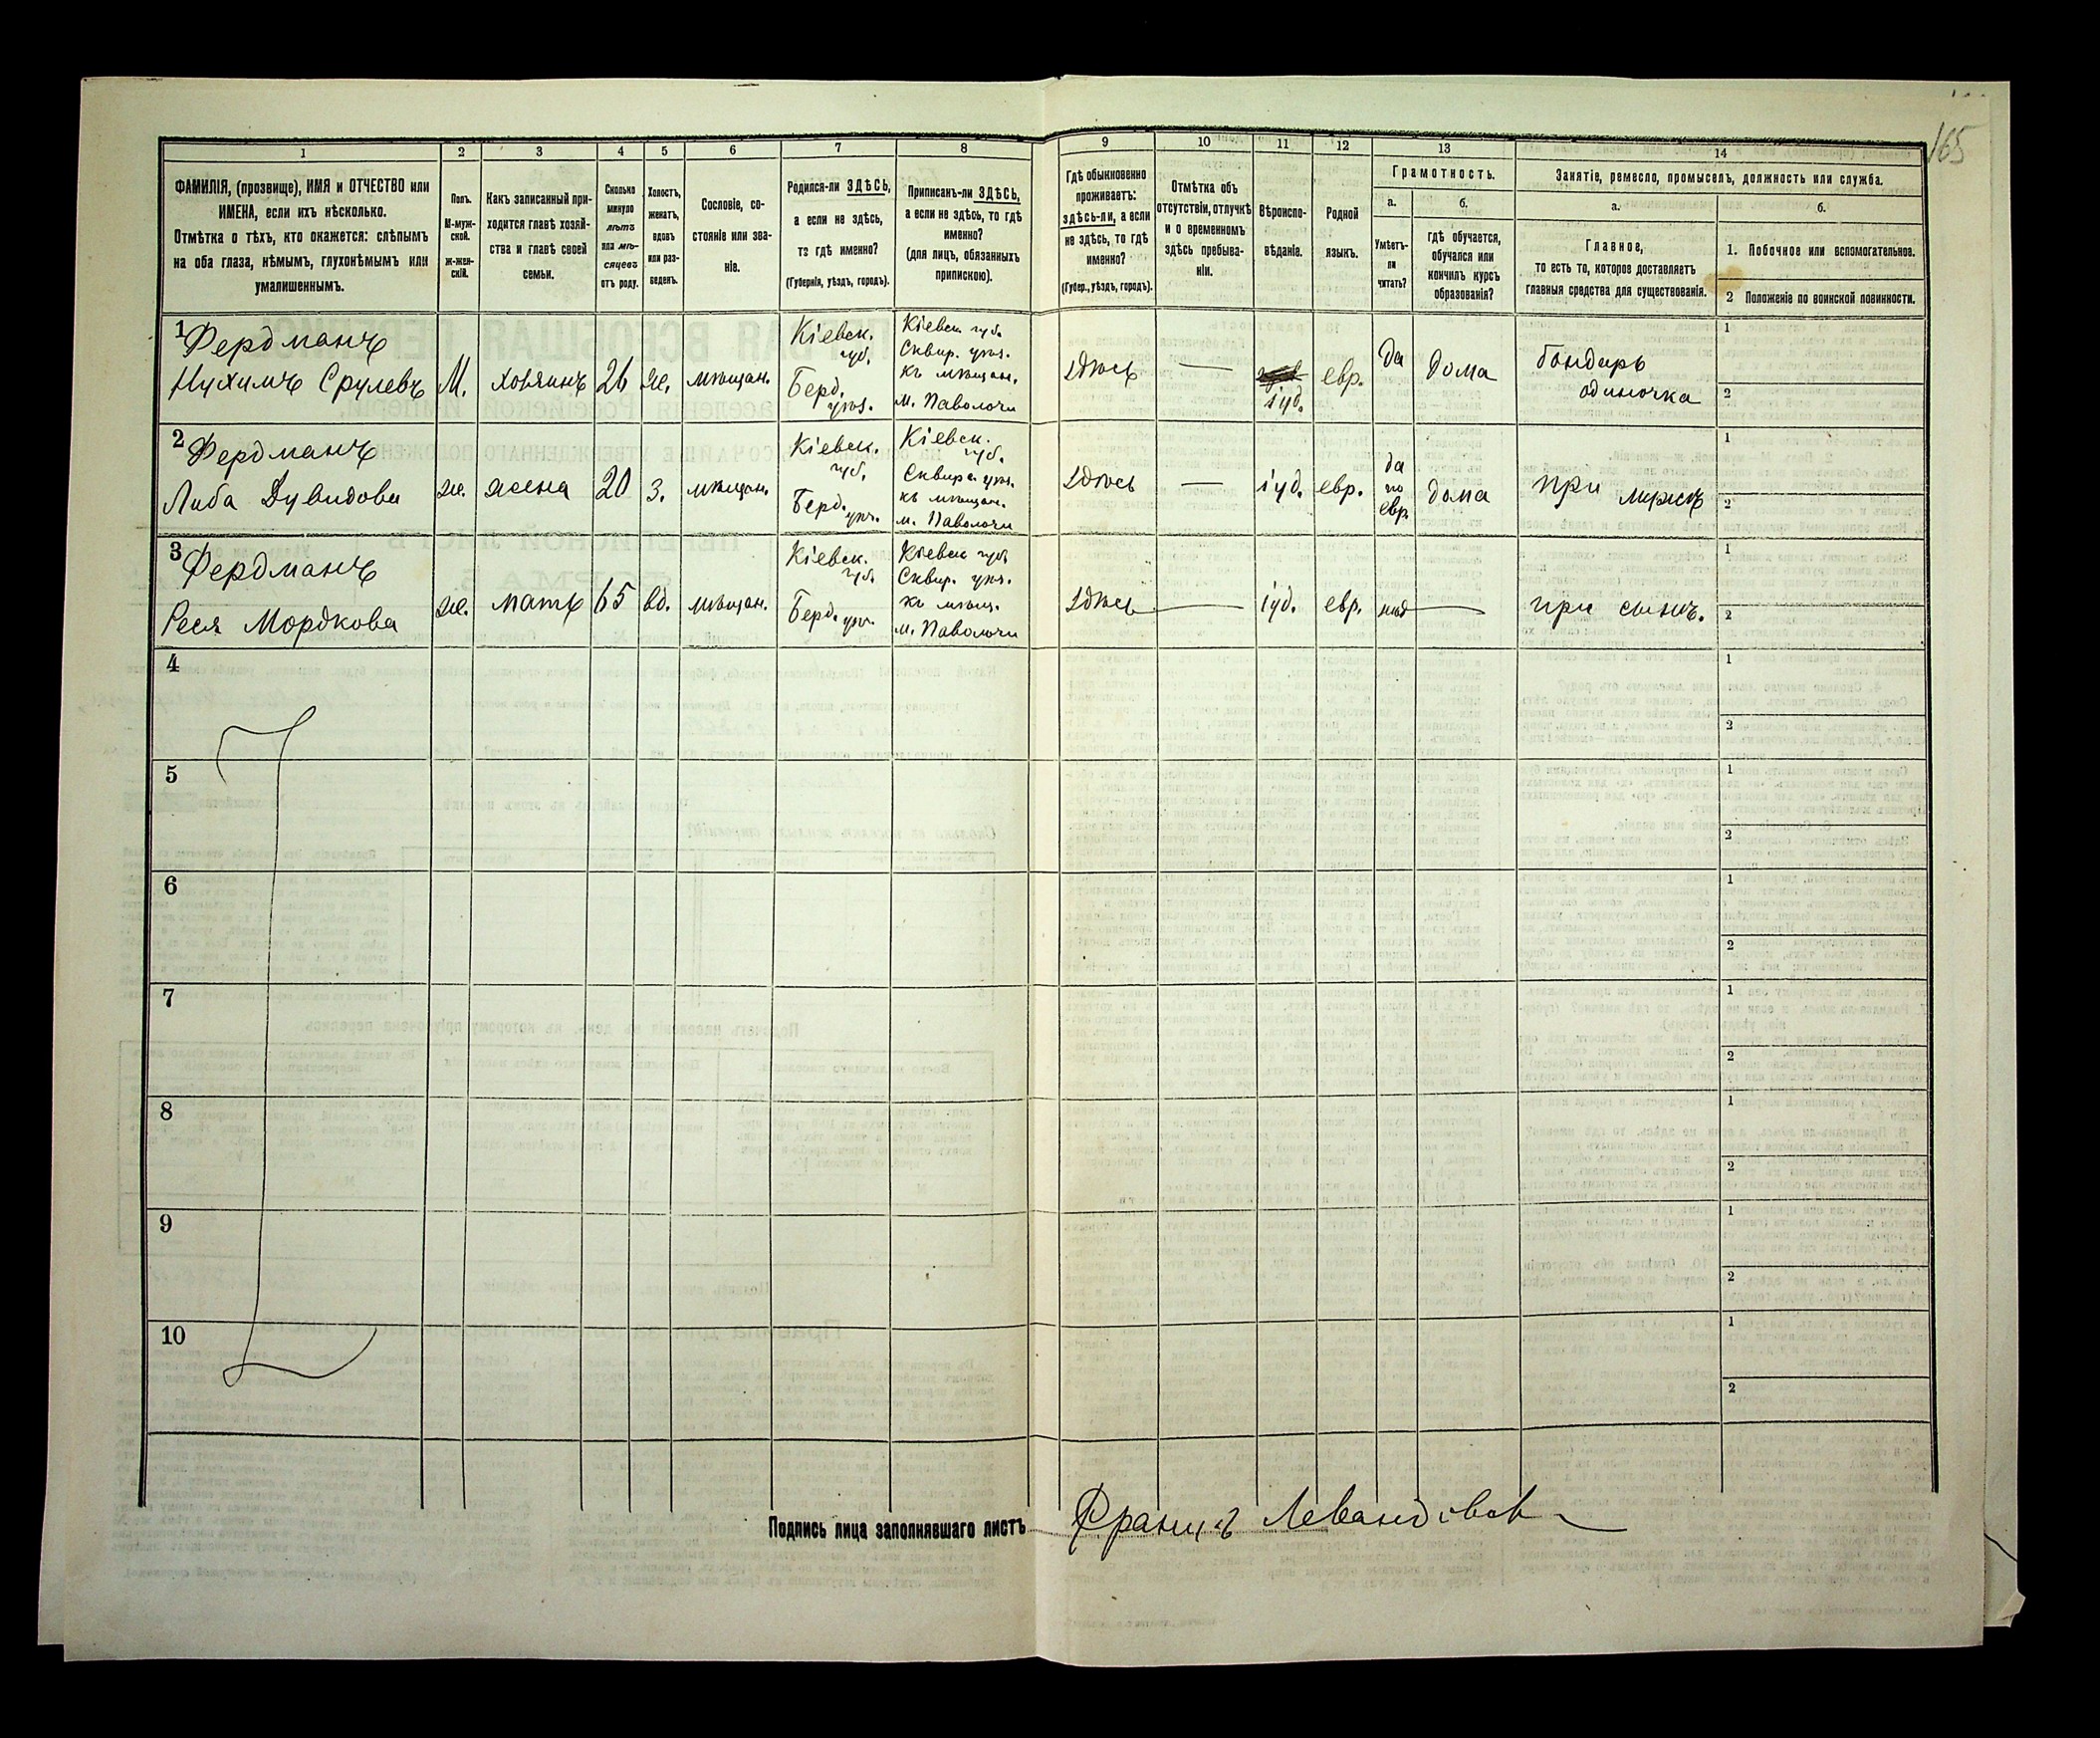 165
1
2
3
4
5
6
7
8
9
10
11
12
13
14
ФАМИЛІЯ, (прозвище), ИМЯ и ОТЧЕСТВО или
ИМЕНА, если ихъ нѣсколько.
Отмѣтка о тѣхъ, кто окажется: слѣпымъ
на оба глаза, нѣмымъ, глухонѣмымъ или
умалишеннымъ.
Полъ.
М-муж-
ской.
Ж-жен-
скій.
Какъ записанный при-
ходится главѣ хозяй-
ства и главѣ своей
семьи.
Сколько
минуло
лѣтъ
или мѣ-
сяцевъ
отъ роду.
Холостъ,
женатъ,
вдовъ
или раз-
веденъ.
Сословіе, со-
стояніе или зва-
ніе.
Родился-ли ЗДѢСЬ,
а если не здѣсь,
то гдѣ именно?
(Губернія, уѣздъ, городъ).
Приписанъ-ли ЗДѢСЬ,
а если не здѣсь, то гдѣ
именно?
(для лицъ, обязанныхъ
припискою).
Гдѣ обыкновенно
проживаетъ:
здѣсь-ли, а если
не здѣсь, то гдѣ
именно?
(Губер., уѣздъ, городъ).
Отмѣтка объ
отсутствіи, отлучкѣ
и о временномъ
здѣсь пребыва-
ніи.
Вѣроиспо-
вѣданіе.
Родной
языкъ.
Грамотность.
а.
Умѣетъ-
ли
читать?
б.
гдѣ обучается,
обучался или
кончилъ курсъ
образованія?
Занятіе, ремесло, промыселъ, должность или служба.
а.
Главное,
то есть то, которое доставляетъ
главныя средства для существованія.
б.
1. Побочное или вспомогательное.
2 Положеніе по воинской повинности.
1
Фердманъ
Нухимъ Срулевъ
М.
хозяинъ
26
же.
мѣщан.
Кіевск.
губ.
Берд.
уѣз.
Кіевск. губ.
Сквир. уѣз.
къ мѣщан.
м. Паволочи
здѣсь
—
іуд.
евр.
да
дома
бондарь
одиночка
1
2
2
Фердманъ
Либа Дувидова
же.
жена
20
з.
мѣщан.
Кіевск.
губ.
Берд.
уѣз.
Кіевск.
губ.
Сквирс. уѣз.
къ мѣщан.
м. Паволочи
здѣсь
—
іуд.
евр.
да
по
евр.
дома
при мужѣ
1
2
3
Фердманъ
Реся Мордкова
же.
мать
65
вд.
мѣщан.
Кіевск.
губ.
Берд. уѣз.
Кіевск губ
Сквир. уѣз.
къ мѣщ.
м. Паволочи
здѣсь
—
іуд.
евр.
нѣт
—
при сынѣ.
1
2
4
1
2
5
1
2
6
1
2
7
1
2
8
1
2
9
1
2
10
1
2
Подпись лица заполнявшаго листъ
Францъ